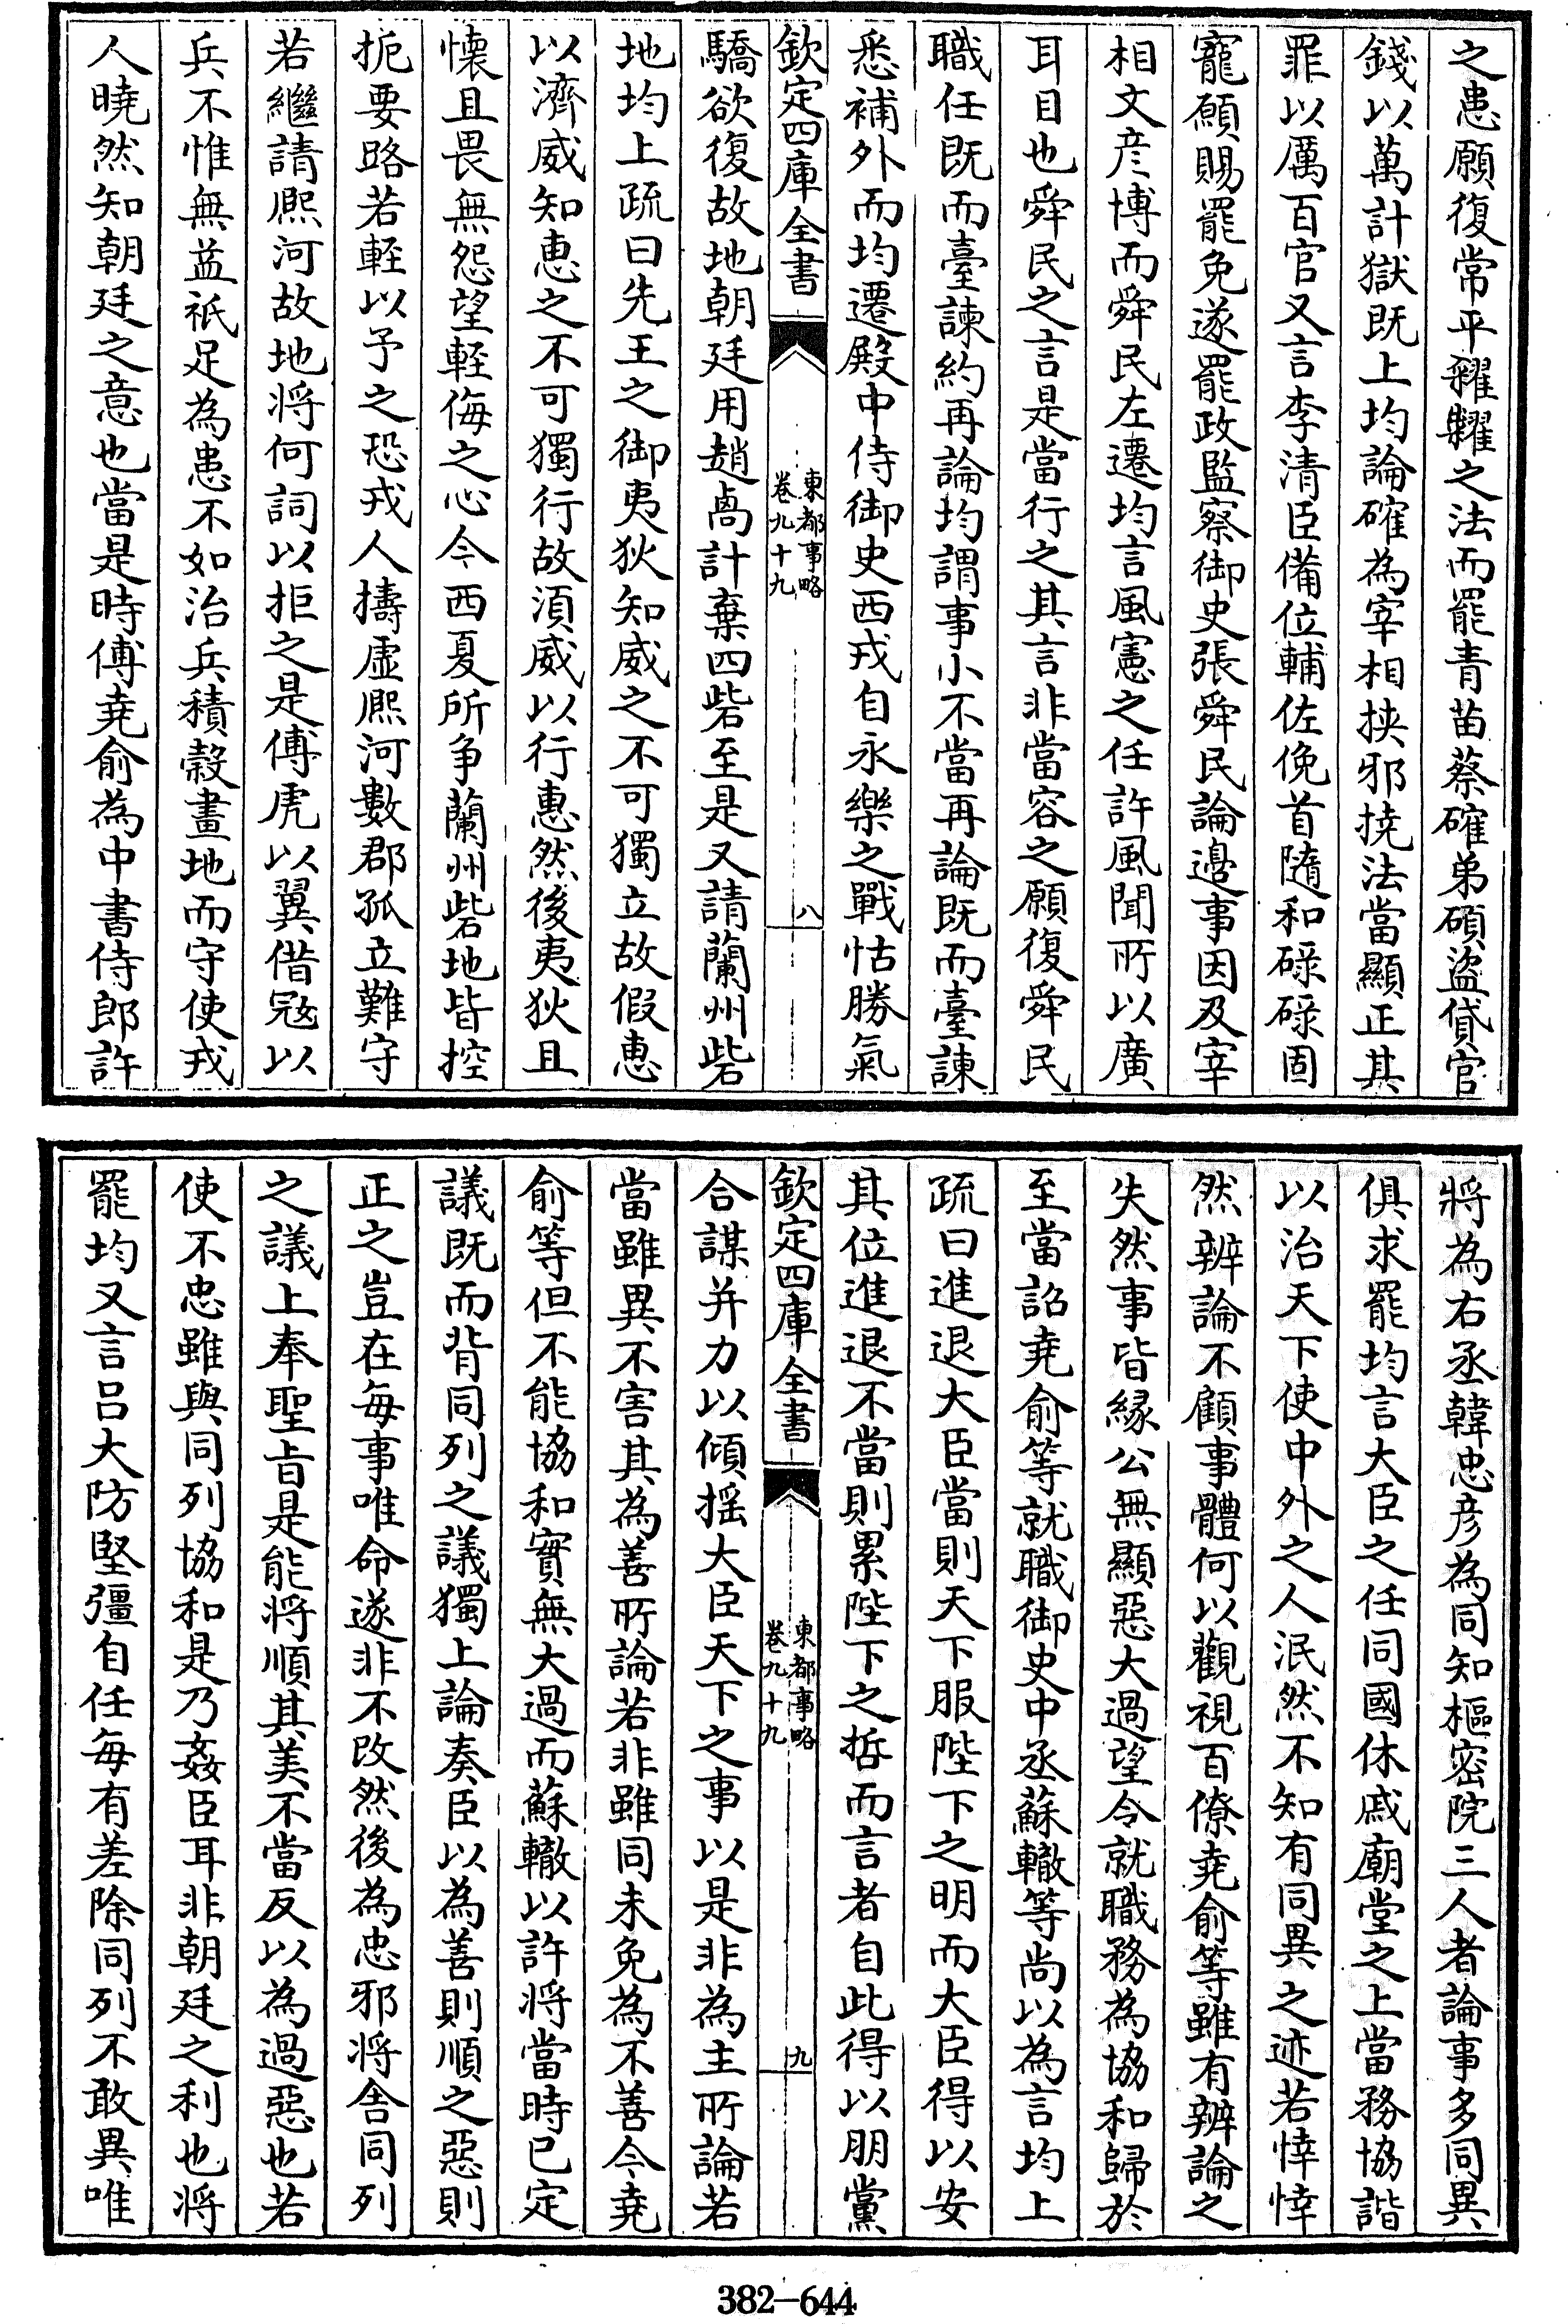 之患願復常平糴糶之法而罷青苗蔡確弟碩盜貸官
錢以萬計獄既上均論確為宰相挾邪撓法當顯正其
罪以厲百官又言李清臣備位輔佐俛首隨和碌碌固
寵願賜罷免遂罷政監察御史張舜民論邊事因及宰
相文彦博而舜民左遷均言風憲之任許風聞所以廣
耳目也舜民之言是當行之其言非當容之願復舜民
職任既而臺諫約再論均謂事小不當再論既而臺諫
悉補外而均遷殿中侍御史西戎自永樂之戰怙勝氣
欽定四庫全書
東都事略
卷九十九
八
驕欲復故地朝廷用趙卨計棄四砦至是又請蘭州砦
地均上疏曰先王之御夷狄知威之不可獨立故假惠
以濟威知惠之不可獨行故湏威以行惠然後夷狄且
懷且畏無怨望輕侮之心今西夏所争蘭州砦地皆控
扼要路若輕以予之恐戎人擣虚熈河數郡孤立難守
若繼請熈河故地將何詞以拒之是傅虎以翼借寇以
兵不惟無益祇足為患不如治兵積穀畫地而守使戎
人曉然知朝廷之意也當是時傅堯俞為中書侍郎許
將為右丞韓忠彦為同知樞密院三人者論事多同異
俱求罷均言大臣之任同國休戚廟堂之上當務協諧
以治天下使中外之人泯然不知有同異之迹若悻悻
然辨論不顧事體何以觀視百僚堯俞等雖有辨論之
失然事皆緣公無顯惡大過望令就職務為協和歸於
至當詔堯俞等就職御史中丞蘇轍等尚以為言均上
疏曰進退大臣當則天下服陛下之明而大臣得以安
其位進退不當則累陛下之哲而言者自此得以朋黨
欽定四庫全書
東都事略
卷九十九
九
合謀并力以傾揺大臣天下之事以是非為主所論若
當雖異不害其為善所論若非雖同未免為不善今堯
俞等但不能協和實無大過而蘇轍以許將當時已定
議既而背同列之議獨上論奏臣以為善則順之惡則
正之豈在每事唯命遂非不改然後為忠邪將舍同列
之議上奉聖旨是能將順其美不當反以為過惡也若
使不忠雖與同列協和是乃姦臣耳非朝廷之利也將
罷均又言吕大防堅彊自任每有差除同列不敢異唯
382-644